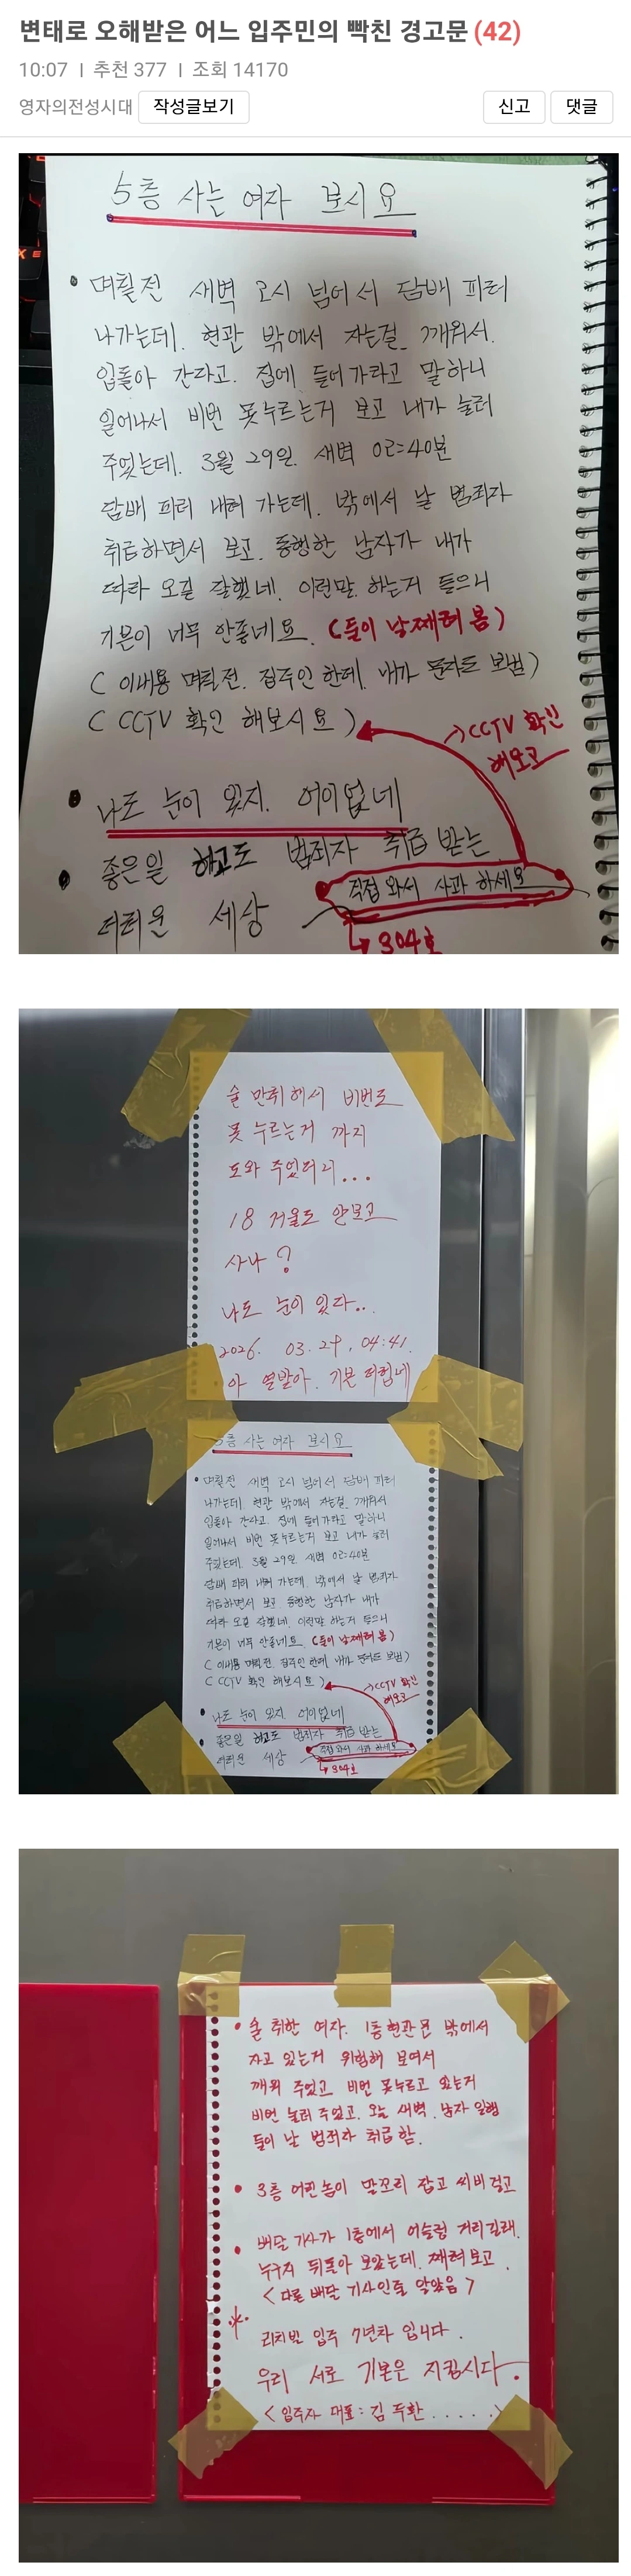 변태로 오해받은 어느 입주민의 빡친 경고문 (42)
10:07 | 추천 377 | 조회 14170
영자의전성시대 작성글보기 신고 댓글
5층 사는 여자 보시요
• 며칠전 새벽 2시 넘어서 담배 피러
나가는데. 현관 밖에서 자는걸. 깨워서.
입돌아 간다고. 집에 들어가라고 말하니
일어나서 비번 못누르는거 보고 내가 눌러
주었는데. 3월 29일. 새벽 02:40분
담배 피러 내려 가는데. 밖에서 날 범죄자
취급하면서 보고. 동행한 남자가 내가
따라 오길 잘했네. 이런말. 하는거 들으니
기분이 너무 안좋네요. (둘이 날째려 봄)
( 이내용 며칠전. 집주인 한테. 내가 문자도 보냄)
( CCTV 확인 해보시요 )
→ CCTV 확인
해보고
• 나도 눈이 있지. 어이없네
• 좋은일 하고도 범죄자 취급 받는
더러운 세상
직접 와서 사과 하세요
↳ 304호
술 만취해서 비번도
못 누르는거 까지
도와 주었더니...
18 거울도 안보고
사나?
나도 눈이 있다...
2026. 03. 29, 04:41.
아 열받아. 기분 더럽네
5층 사는 여자 보시요
• 며칠전 새벽 2시 넘어서 담배 피러
나가는데. 현관 밖에서 자는걸. 깨워서
입돌아 간다고. 집에 들어가라고 말하니
일어나서 비번 못누르는거 보고 내가 눌러
주었는데. 3월 29일. 새벽 02:40분
담배 피러 내려 가는데. 밖에서 날 범죄자
취급하면서 보고. 동행한 남자가 내가
따라 오길 잘했네. 이런말 하는거 들으니
기분이 너무 안좋네요. (둘이 날째려 봄)
( 이내용 며칠전. 집주인 한테. 내가 문자도 보냄)
( CCTV 확인 해보시요 )
→ CCTV 확인
해보고
• 나도 눈이 있지. 어이없네
• 좋은일 하고도 범죄자 취급 받는
더러운 세상
직접 와서 사과 하세요
↳ 304호
• 술 취한 여자. 1층 현관문 밖에서
자고 있는거 위험해 보여서
깨워 주었고 비번 못누르고 있는거
비번 눌러 주었고. 오늘 새벽. 남자 일행
둘이 날 범죄자 취급함.
• 3층 어린놈이 말꼬리 잡고 씨비 걸고
• 배달 기사가 1층에서 어슬렁 거리길래.
누구지 뒤돌아 보았는데. 째려보고.
< 다른 배달 기사인줄 알았음 >
* 리치빌 입주 7년차 입니다.
우리 서로 기본은 지킵시다.
< 입주자 대표 : 김 두환 . . . . . >